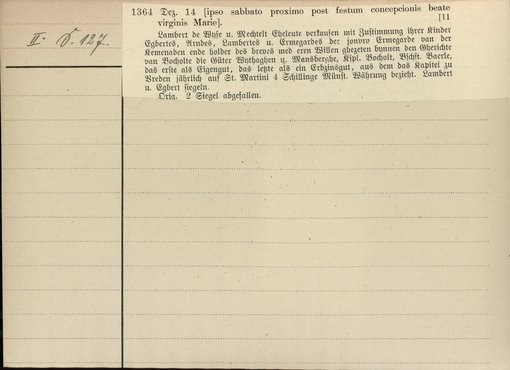 II. D. 127.
1364 Dez. 14 [ipso sabbato proximo post festum concepcionis beate
virginis Marie]. [11
Lambert de Wyse u. Mechtelt Eheleute verkaufen mit Zustimmung ihrer Kinder
Egbertes, Arndes, Lambertes u. Ermegardes der joncro Ermegarde van der
Kemenaden ende holder des breves med eren Willen ghezeten bynnen den Gherichte
van Bocholte die Güter Wythaghen u. Mansberghe, Kspl. Bocholt, Bschft. Baerle,
das erste als Eigengut, das letzte als ein Erbzinsgut, aus dem das Kapitel zu
Vreden jährlich auf St. Martini 4 Schillinge Münst. Währung bezieht. Lambert
u. Egbert siegeln.
Orig. 2 Siegel abgefallen.